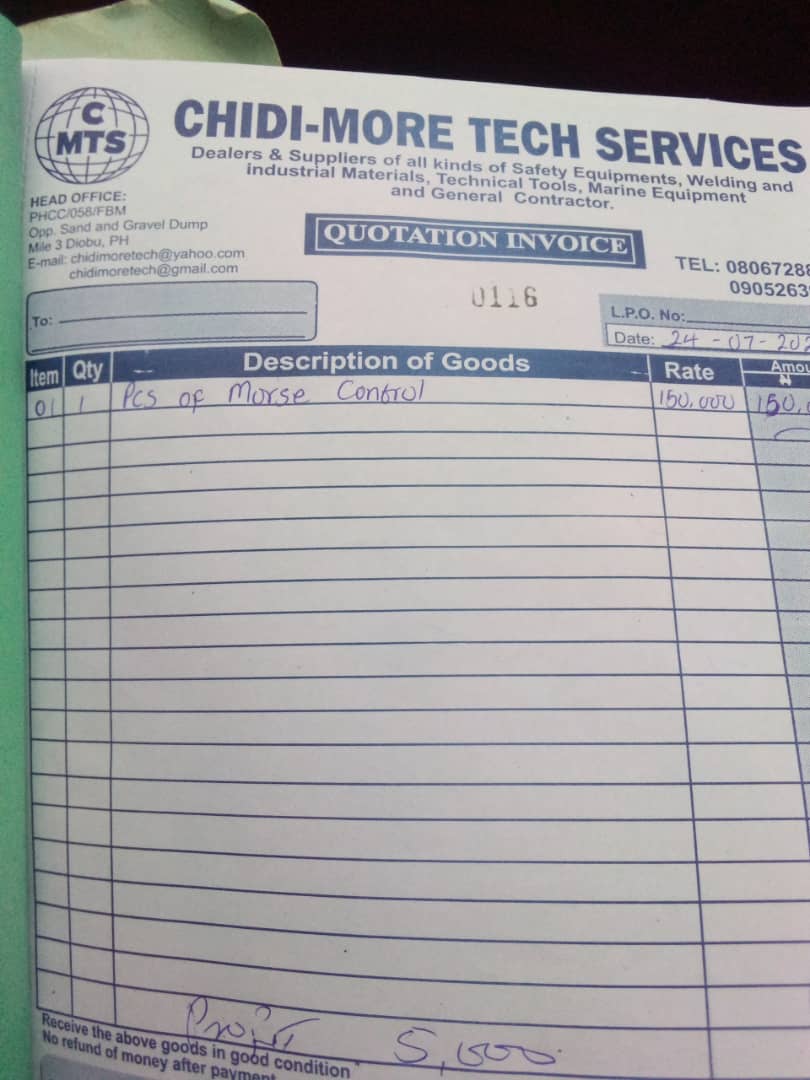 C
MTS
CHIDI-MORE TECH SERVICES
Dealers & Suppliers of all kinds of Safety Equipments, Welding and
industrial Materials, Technical Tools, Marine Equipment
and General Contractor.
HEAD OFFICE:
PHCC/058/FBM
Opp. Sand and Gravel Dump
Mile 3 Diobu, PH
E-mail: chidimoretech@yahoo.com
chidimoretech@gmail.com
QUOTATION INVOICE
TEL: 08067288
0905263
0116
To:
L.P.O. No:
Date: 24-07-202
Item Qty Description of Goods Rate Amou
N
01 1 Pcs of Morse Control 150,000 150,0
Profit 5,000
Receive the above goods in good condition
No refund of money after payment